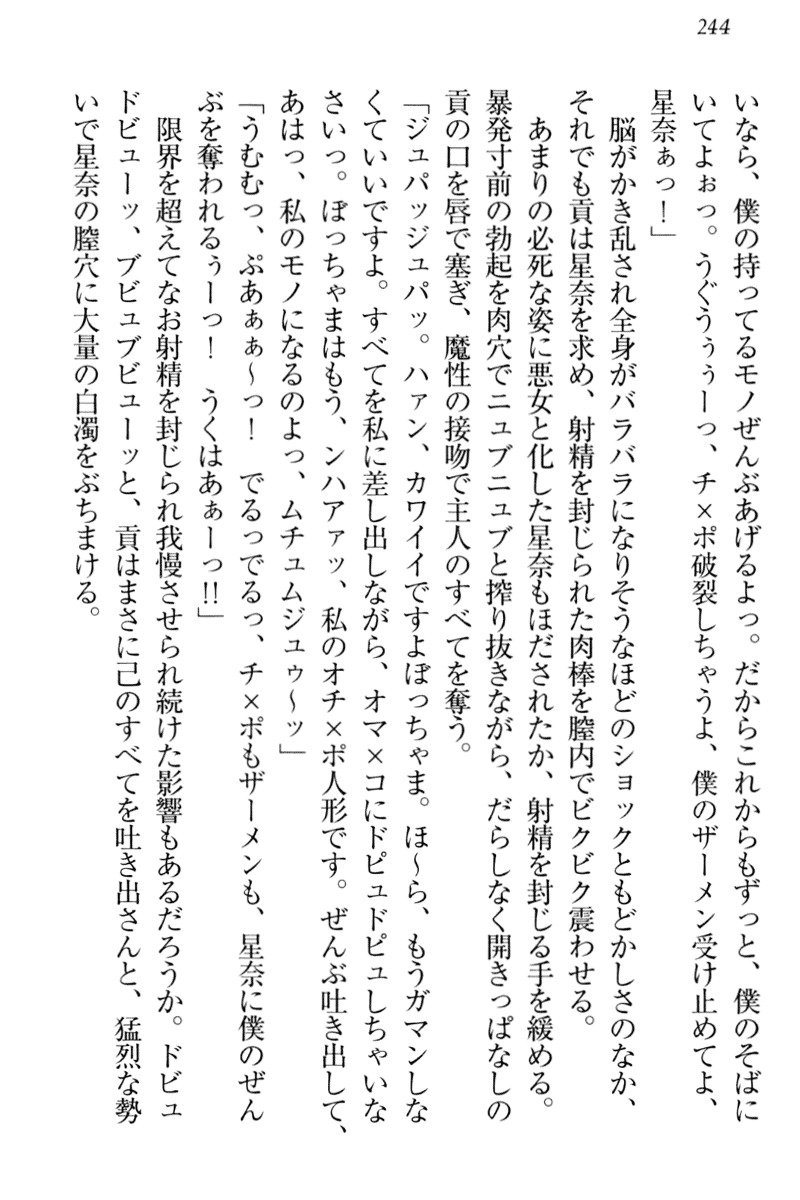 244
いなら、僕の持ってるモノぜんぶあげるよっ。だからこれからもずっと、僕のそばに
いてよぉっ。うぐうぅぅーっ、チ×ポ破裂しちゃうよ、僕のザーメン受け止めてよ、
星奈ぁっ！」
脳がかき乱され全身がバラバラになりそうなほどのショックともどかしさのなか、
それでも貢は星奈を求め、射精を封じられた肉棒を膣内でビクビク震わせる。
あまりの必死な姿に悪女と化した星奈もほだされたか、射精を封じる手を緩める。
暴発寸前の勃起を肉穴でニュブニュブと搾り抜きながら、だらしなく開きっぱなしの
貢の口を唇で塞ぎ、魔性の接吻で主人のすべてを奪う。
「ジュパッジュパッ。ハァン、カワイイですよぼっちゃま。ほ～ら、もうガマンしな
くていいですよ。すべてを私に差し出しながら、オマ×コにドピュドピュしちゃいな
さいっ。ぼっちゃまはもう、ンハアァッ、私のオチ×ポ人形です。ぜんぶ吐き出して、
あはっ、私のモノになるのよっ、ムチュムジュゥ～ッ」
「うむむっ、ぷあぁぁ～っ！　でるっでるっ、チ×ポもザーメンも、星奈に僕のぜん
ぶを奪われるぅーっ！　うくはあぁーっ!!」
限界を超えてなお射精を封じられ我慢させられ続けた影響もあるだろうか。ドビュ
ドビューッ、ブビュブビューッと、貢はまさに己のすべてを吐き出さんと、猛烈な勢
いで星奈の膣穴に大量の白濁をぶちまける。